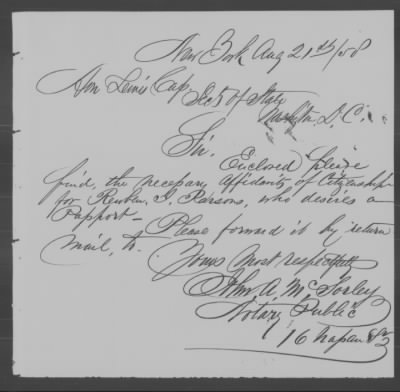 New York Aug 21st/58
Hon Lewis Cap
Secy of State
Washtn. D.C.
Sir.
Enclosed please
find, the necessary Affidavits of Citizenship
for Reuben S. Parsons, who desires a
Passport — Please forward it by return
mail, to. Yours Most respectfully
Jno. A. McSorley
Notary Public
16